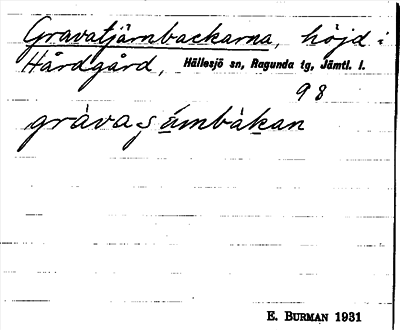 Gravatjärnbackarna, höjd i
Hårdgård, Hällesjö sn, Ragunda tg, Jämtl. l.
98
gràvaʂämbàkan
E. BURMAN 1931